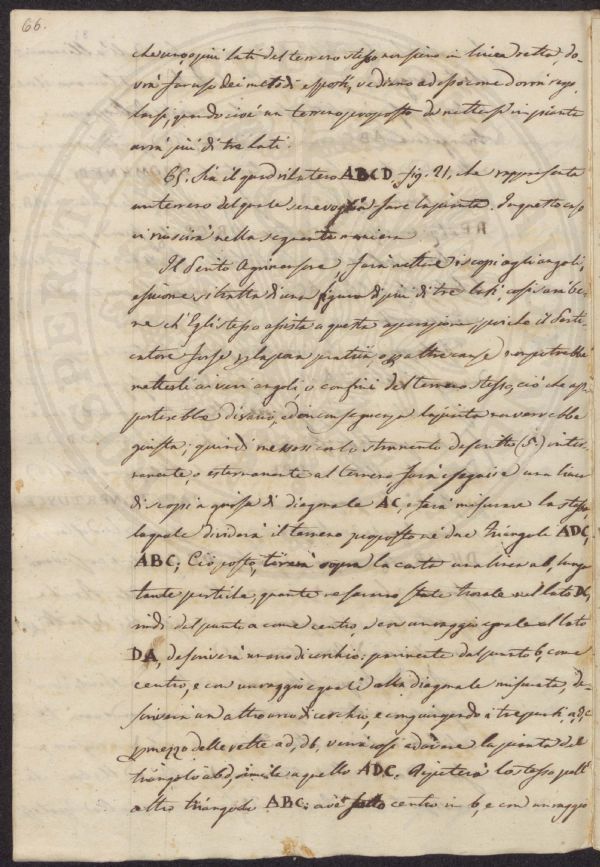 66.
che uno, o più lati del terreno stesso non siano in linea retta, do-
vrà far uso dei metodi esposti, vediamo adesso come dovrà rego-
larsi, quando cioè un terreno proposto da mettersi in pianta
avrà più di tre lati.
65. Sia il quadrilatero ABCD, fig. 21, che rappresenta
un terreno del quale se ne voglia fare la pianta. In questo caso
vi riuscirà nella seguente maniera
Il Perito Agrimensore farà mettere i scopi agli angoli,
essicome si tratta di una figura di più di tre lati, così sarà be-
ne ch'Egli stesso assista a questa operazione; poiché il Porta-
tore forse per la poca pratica, o per altre cause non potrebbe
metterli ai veri angoli, o confini del terreno stesso, ciò che ap-
porterebbe divario, ed in conseguenza la pianta non verrebbe
giusta; quindi messosi con lo strumento descritto (5.) inter-
namente, o esternamente al terreno farà eseguire una linea
di scopi a guisa di diagonale AC, e farà misurare la stessa,
la quale dividerà il terreno proposto ne' due triangoli ADC,
ABC; Ciò posto, tirerà sopra la carta una linea ab, lunga
tante particelle, quante ne saranno state trovate nel lato DC,
indi dal punto a come centro, e con un raggio eguale al lato
DA, descriverà un arco di cerchio: parimente dal punto b, come
centro, e con un raggio eguale alla diagonale misurata, de-
scriverà un altro arco di cerchio, e congiungendo i tre punti, a, d, c
per mezzo delle rette ad, db, verrà così ad avere la pianta del
triangolo abd, simile a quello ADC. Ripeterà lo stesso per l'
altro triangolo ABC: avrà fatto centro in b, e con un raggio